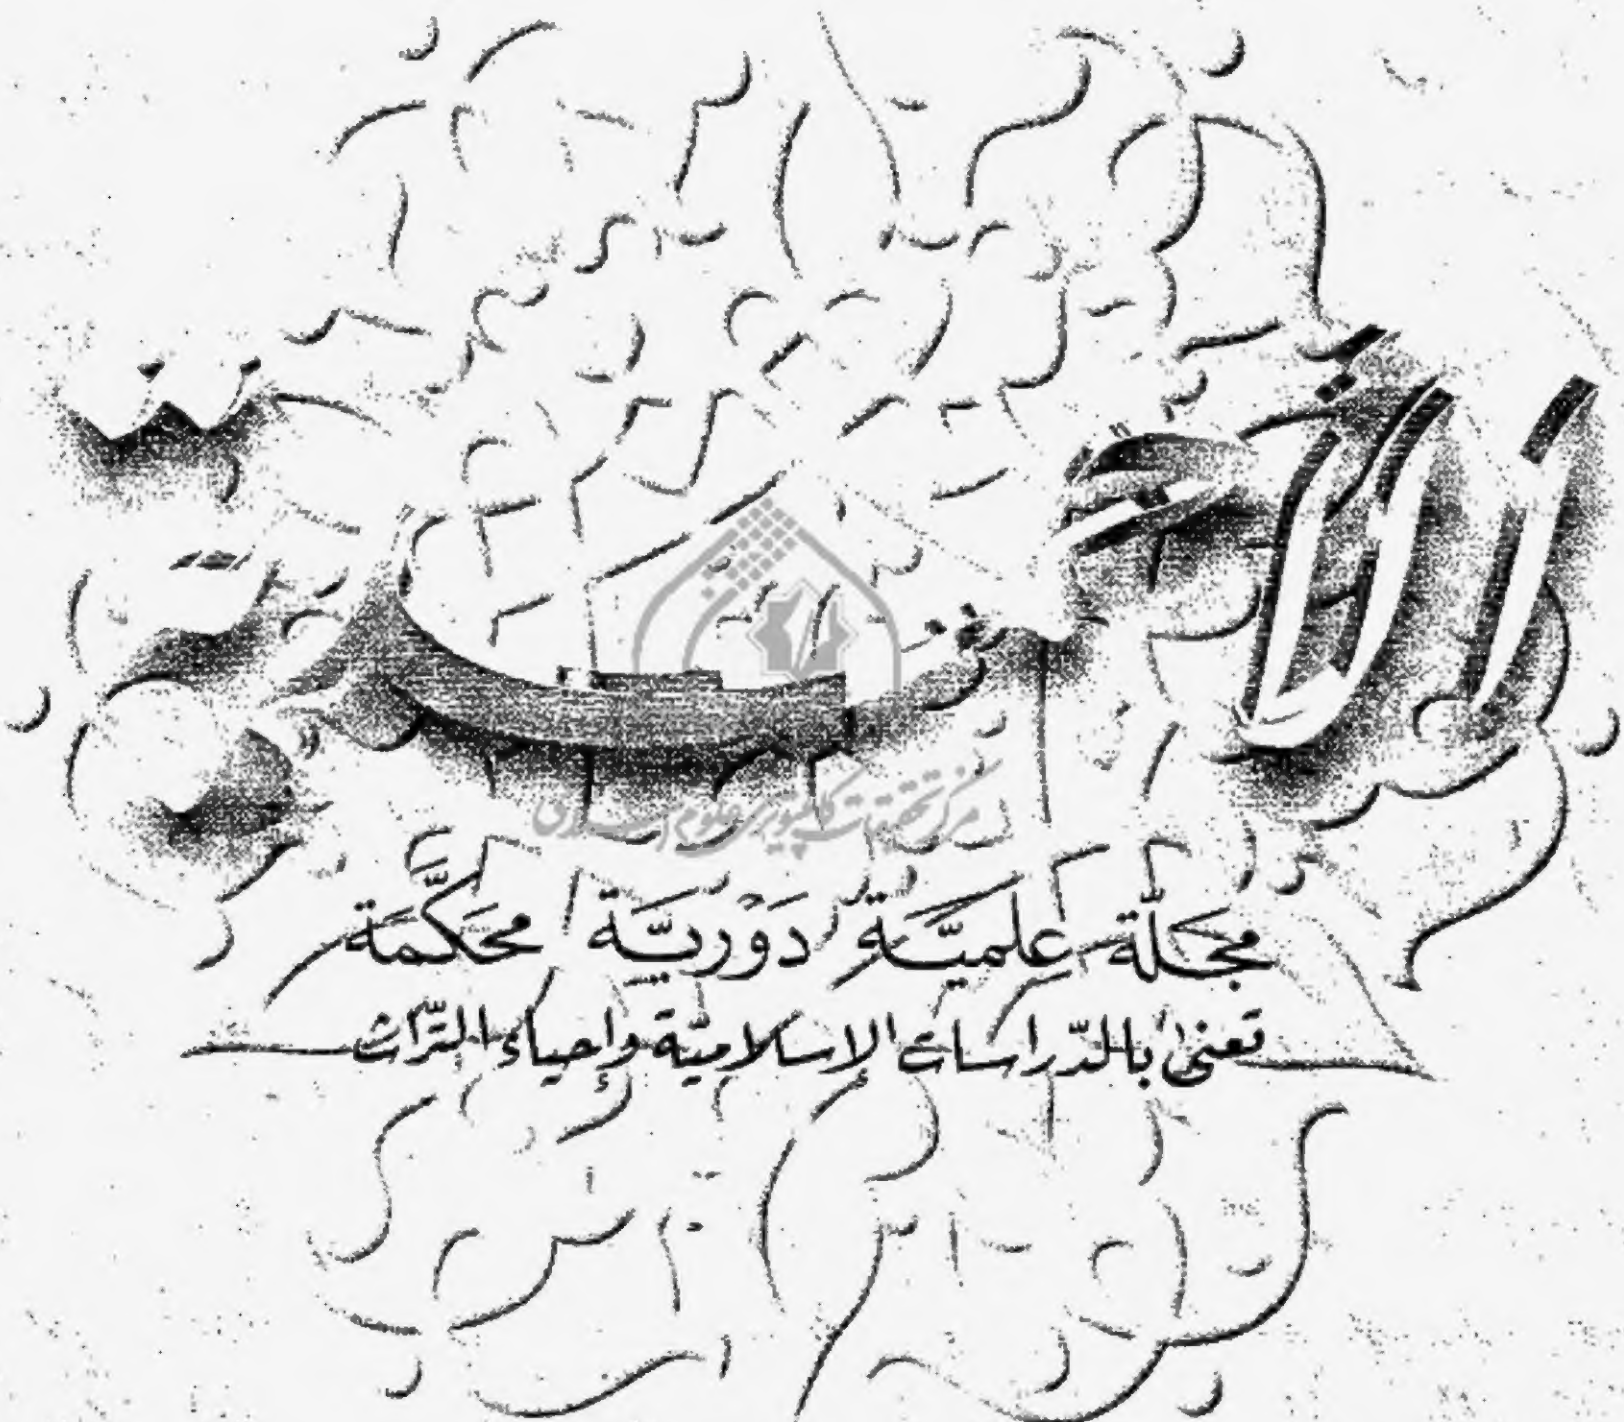 الأحمدية
مركز تحقيقات كامپيوتری علوم اسلامی
مجلة علمية دورية محكّمة
تعنى بالدّراسات الإسلامية وإحياء التّراث